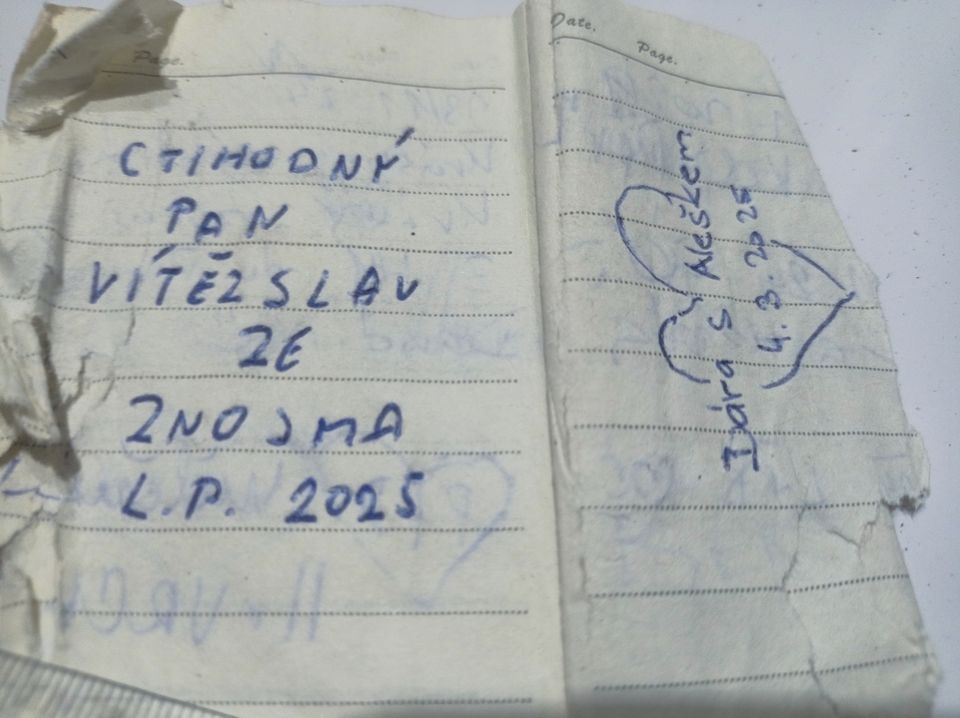 Page.
CTIHODNÝ
PAN
VÍTĚZSLAV
ZE
ZNOJMA
L.P. 2025
Date.
Page.
Dára s Aleškem
4.3.2025